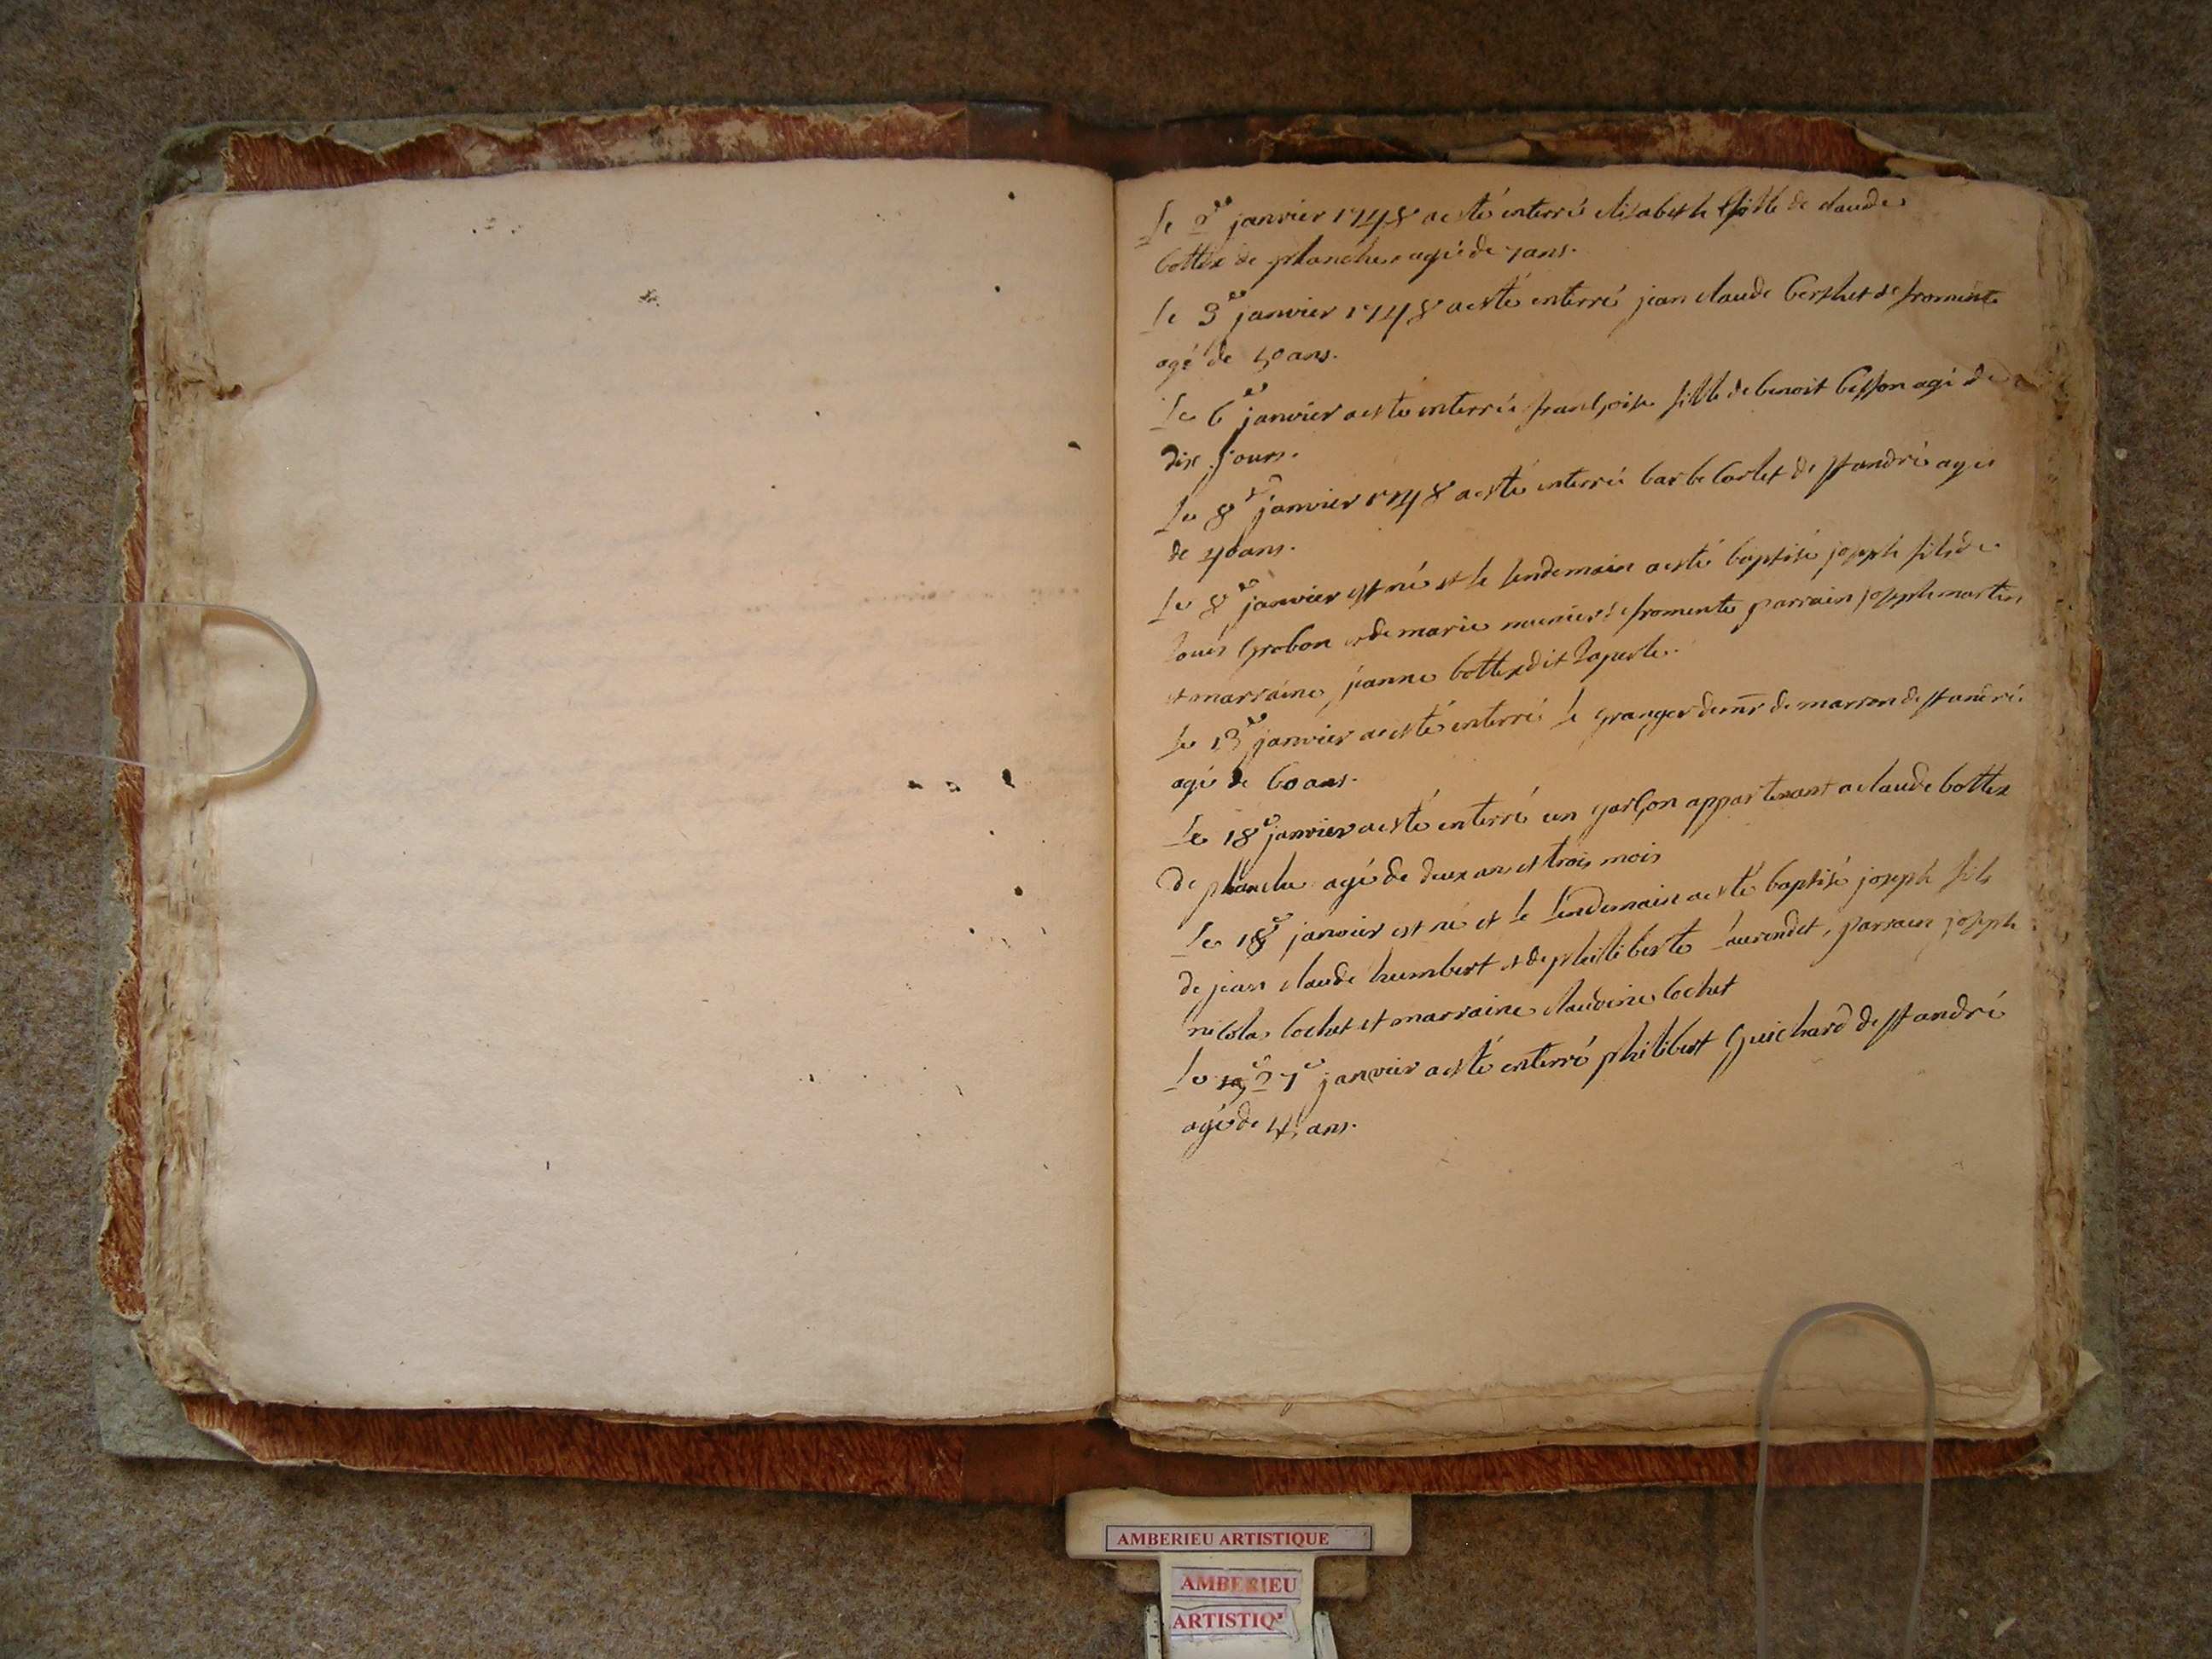 Le 2e janvier 1748 a esté enterré elisabeth fille de claude
bottex de planche agé de 7 ans.
le 3e janvier 1748 a esté enterré jean claude berthet de fromente
agé de 50 ans.
Le 6e janvier a esté enterrée francoise fille de benoit besson agé de
dix jours.
Le 8e janvier 1748 a esté enterré barbe de st andré agé
de 40 ans.
Le 8e janvier est né et le lendemain a esté baptisé joseph fils de
Louis grobon et de marie de fromente parrain joseph martin
et marraine jeanne bottex dit
Le 13e janvier a esté enterré le granger de mr de marron de st andré
agé de 60 ans.
Le 18e janvier a esté enterré un garçon appartenant a claude bottex
de planche agé de deux ans et trois mois
Le 18e janvier est né et le lendemain a esté baptisé joseph fils
de jean claude humbert et de philiberte parrain joseph
nicolas cochet et marraine claudine cochet
Le 27e janvier a esté enterré philibert Guichard de st andré
agé de ans.
AMBERIEU ARTISTIQUE
AMBERIEU
ARTISTIQ